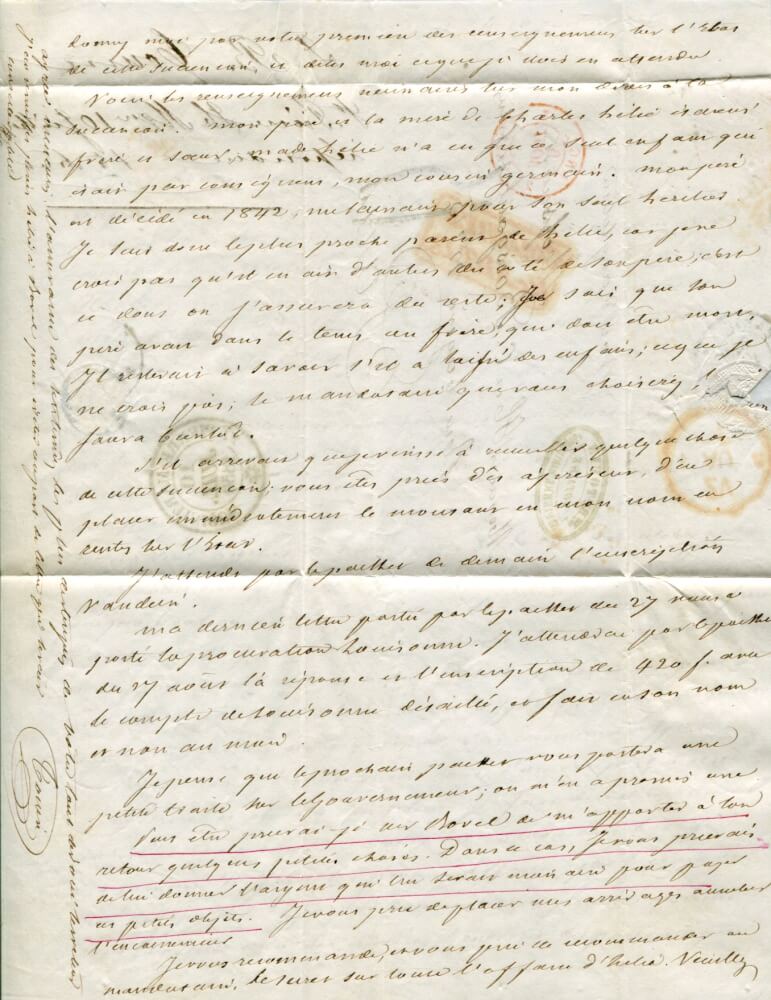 Donnez moi par votre premier des renseignemens sur l'Etat
de cette succession, et dites moi ce que je dois en attendre.
Voici les renseignemens nécessaires sur mon droit à la
succession. mon père et la mère de Charles hélie étaient
frère et sœur, made hélie n'a eu que ce seul enfant qui
était par conséquent, mon cousin germain. mon père
est décédé en 1842, me laissant pour son seul héritier.
Je suis donc le plus proche parent de hélie, car je ne
crois pas qu'il en ait d'autres du côté de son père; c'est
ce dont on s'assurera du reste; Je sais que son
père avait dans le tems un frère, qui doit être mort,
Il resterait à savoir s'il a laissé des enfans; ce que je
ne crois pas; le mandataire que vous choisirez, le
saura bientôt.
S'il arrivait que je vinsse à recueillir quelque chose
de cette succession, vous êtes prié dès à présent, d'en
placer immédiatement le montant en mon nom en
rentes sur l'Etat.
J'attends par le paket de demain l'inscription
Vandeni.
ma dernière lettre partie par le paket du 27 vous a
porté la procuration Louisonne. J'attendrai par le paket
du 17 août la réponse et l'inscription de 420 f. avec
le compte de Louisonne détaillé, et fait en son nom
et non au mien.
Je pense que le prochain paket vous portera une
petite traite sur le Gouvernement; on m'en a promis une.
Peut être prierai-je Mr Borel de m'apporter à son
retour quelques petites choses. Dans ce cas, Je vous prierais
de lui donner l'argent qui lui serait nécessaire pour payer
ces petits objets. Je vous prie de placer mes arrérages au
l'
Je vous recommande, et vous prie de recommander au
mandataire, le secret sur toute l'affaire d'hélie. Veuillez
agréer l'assurance des sentimens les plus
de votre tout dévoué serviteur